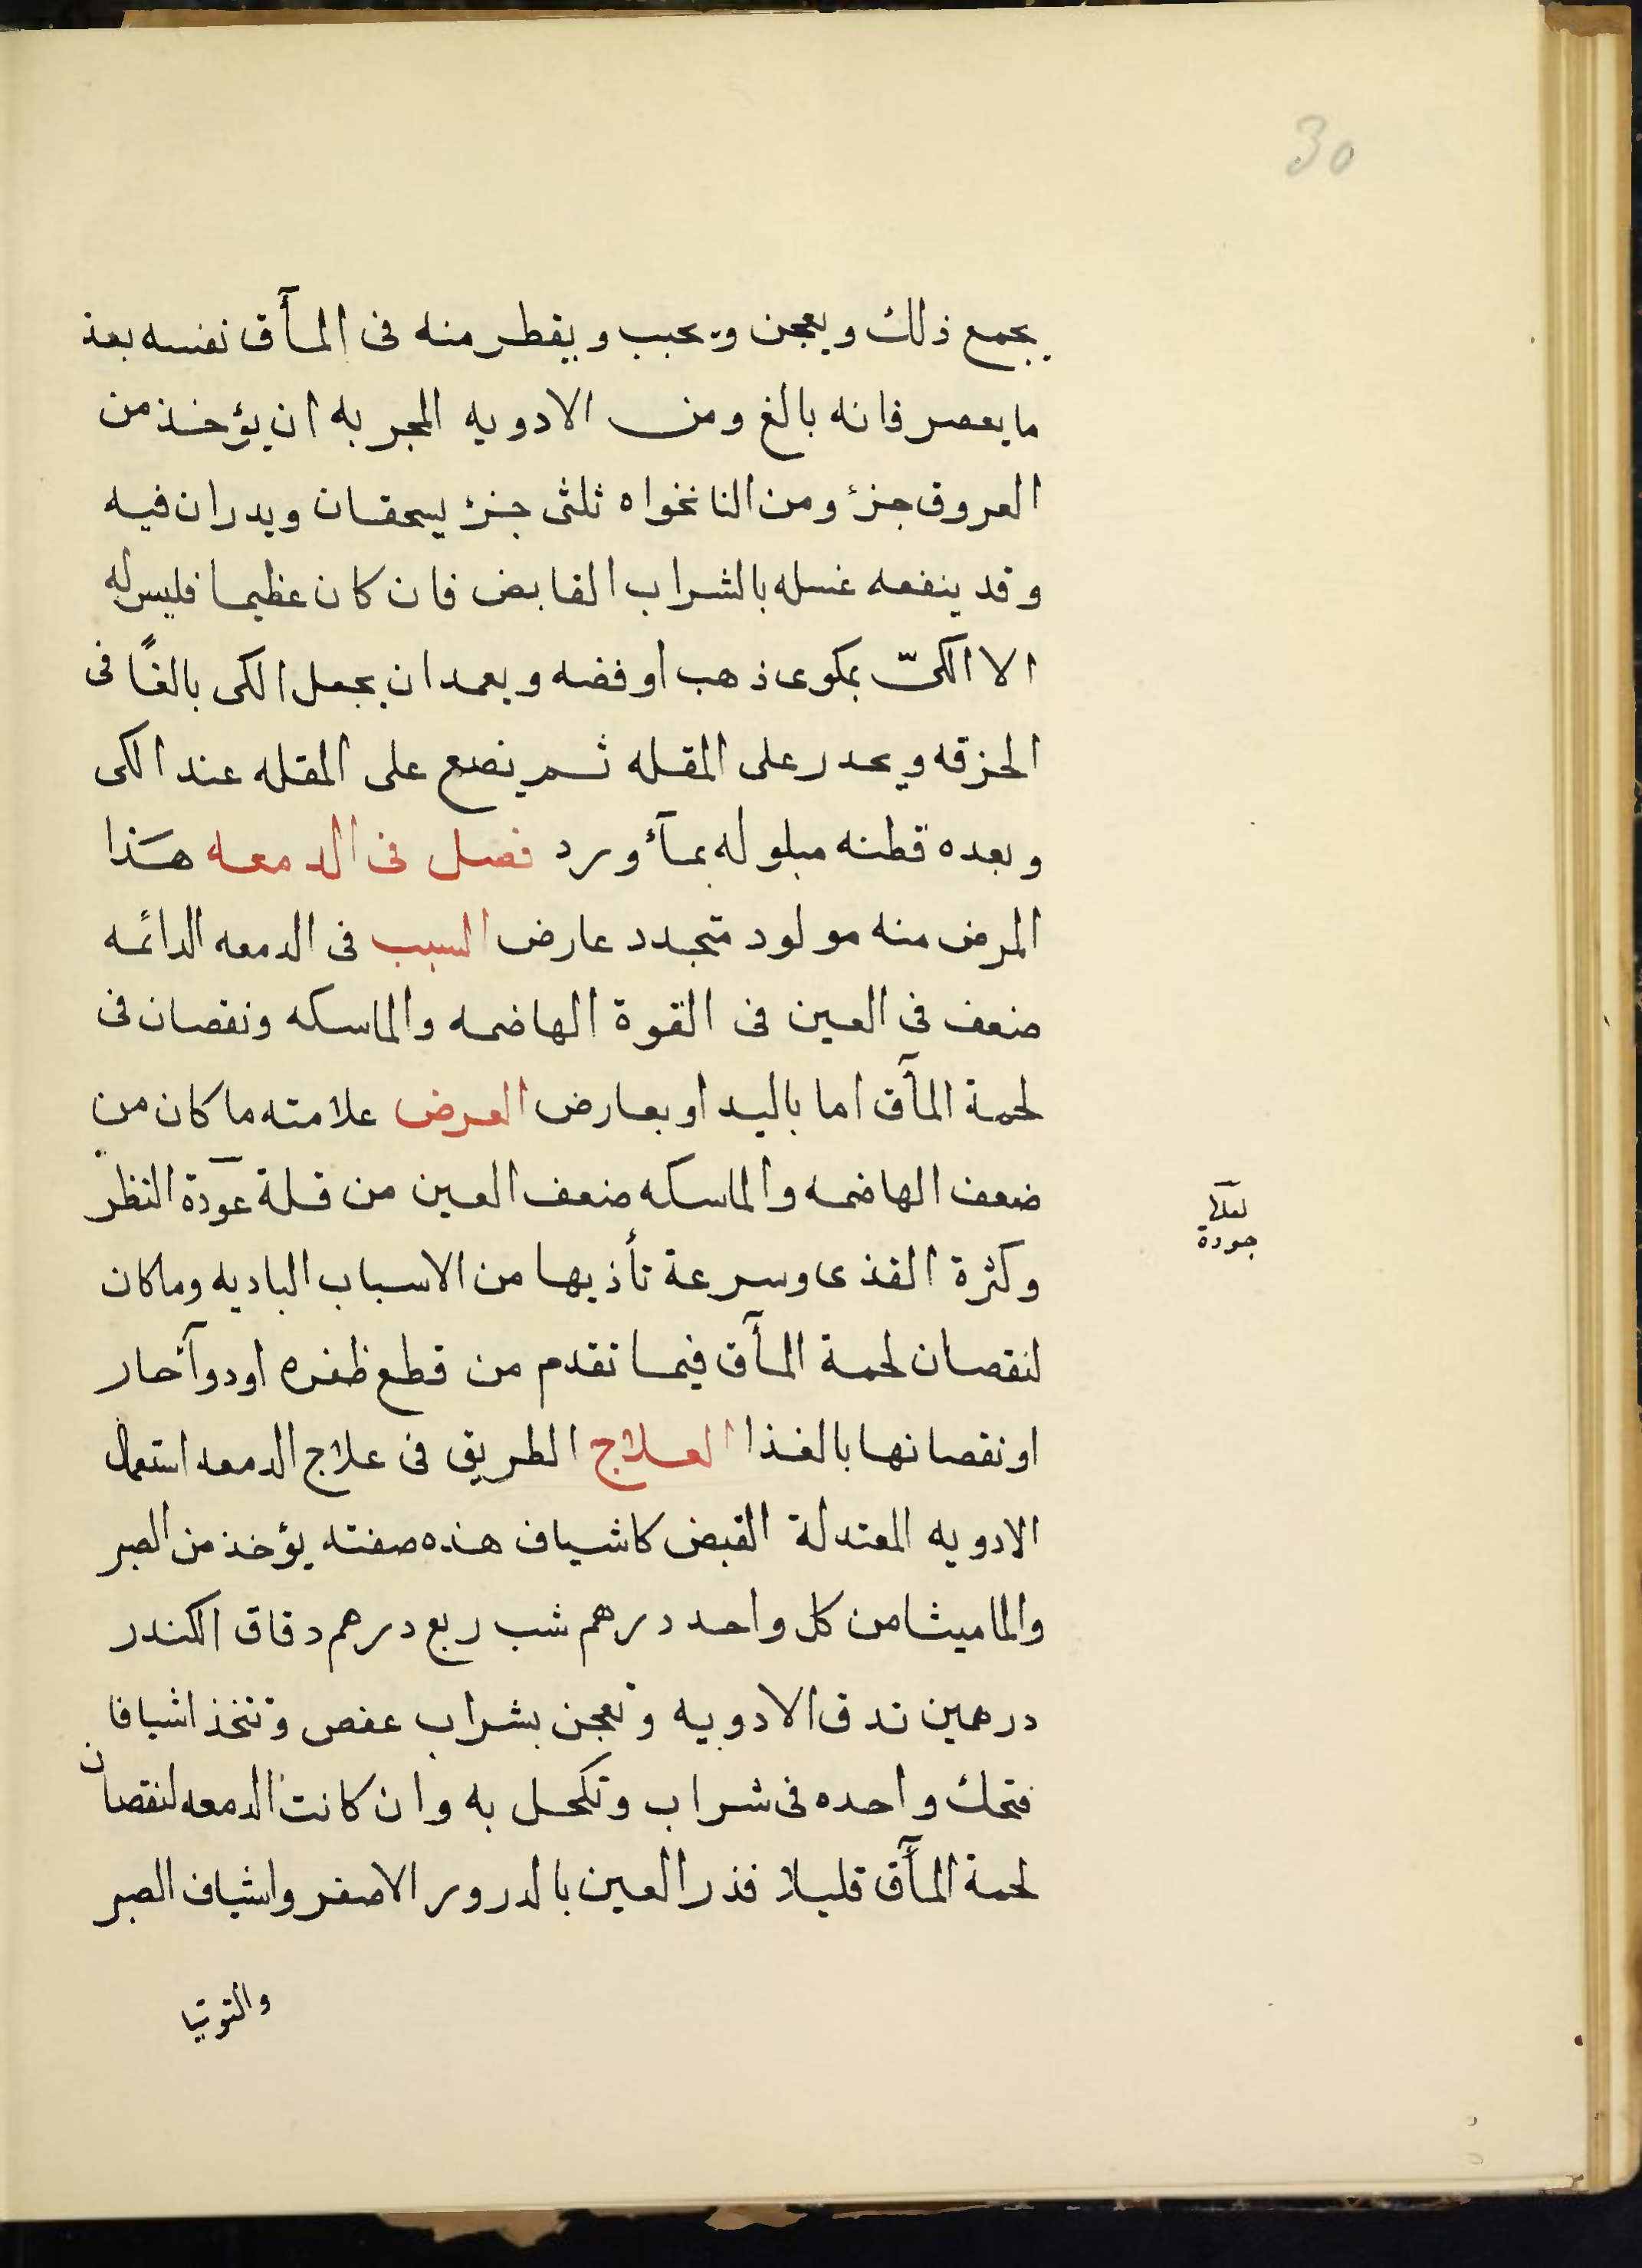 30
يجمع ذلك ويعجن ويحبب ويقطر منه فى المآق نفسه بعد
ما يعصر فانه بالغ ومن الادويه المجربه ان يؤخذ من
العروق جزؤ ومن النانخواه ثلثى جزؤ يسحقان ويدران فيه
وقد ينفعه غسله بالشراب القابض فان كان عظيما فليس له
الا الكىّ بمكوى ذهب او فضه ويعمد ان يجعل الكى بالغًا فى
الحزقه ويحدر على المقله ثم يضع على المقله عند الكى
وبعده قطنه مبلوله بمآء ورد فصل فى الدمعه هذا
المرض منه مولود متجدد عارض السبب فى الدمعه الدائمه
ضعف فى العين فى القوة الهاضمه والماسكه ونقصان فى
لحمة المآق اما باليد او بعارض العرض علامته ما كان من
ضعف الهاضمه والماسكه ضعف العين من قلة عودة النظر
لعلها
جودة
وكثرة القذى وسرعة تأذيها من الاسباب الباديه وما كان
لنقصان لحمة المآق فيما تقدم من قطع ظفره او دوآ حار
او نقصانها بالغذا العلاج الطريق فى علاج الدمعه استعمال
الادويه المعتدلة القبض كاشياف هذه صفته يؤخذ من الصبر
والماميثا من كل واحد درهم شب ربع درهم دقاق الكندر
درهمين تدق الادويه وتعجن بشراب عفص وتتخذ اشيافا
فتحك واحده فى شراب وتكحل به وان كانت الدمعه لنقصان
لحمة المآق قليلا فذر العين بالدرور الاصفر واشياف الصبر
والتوتيا